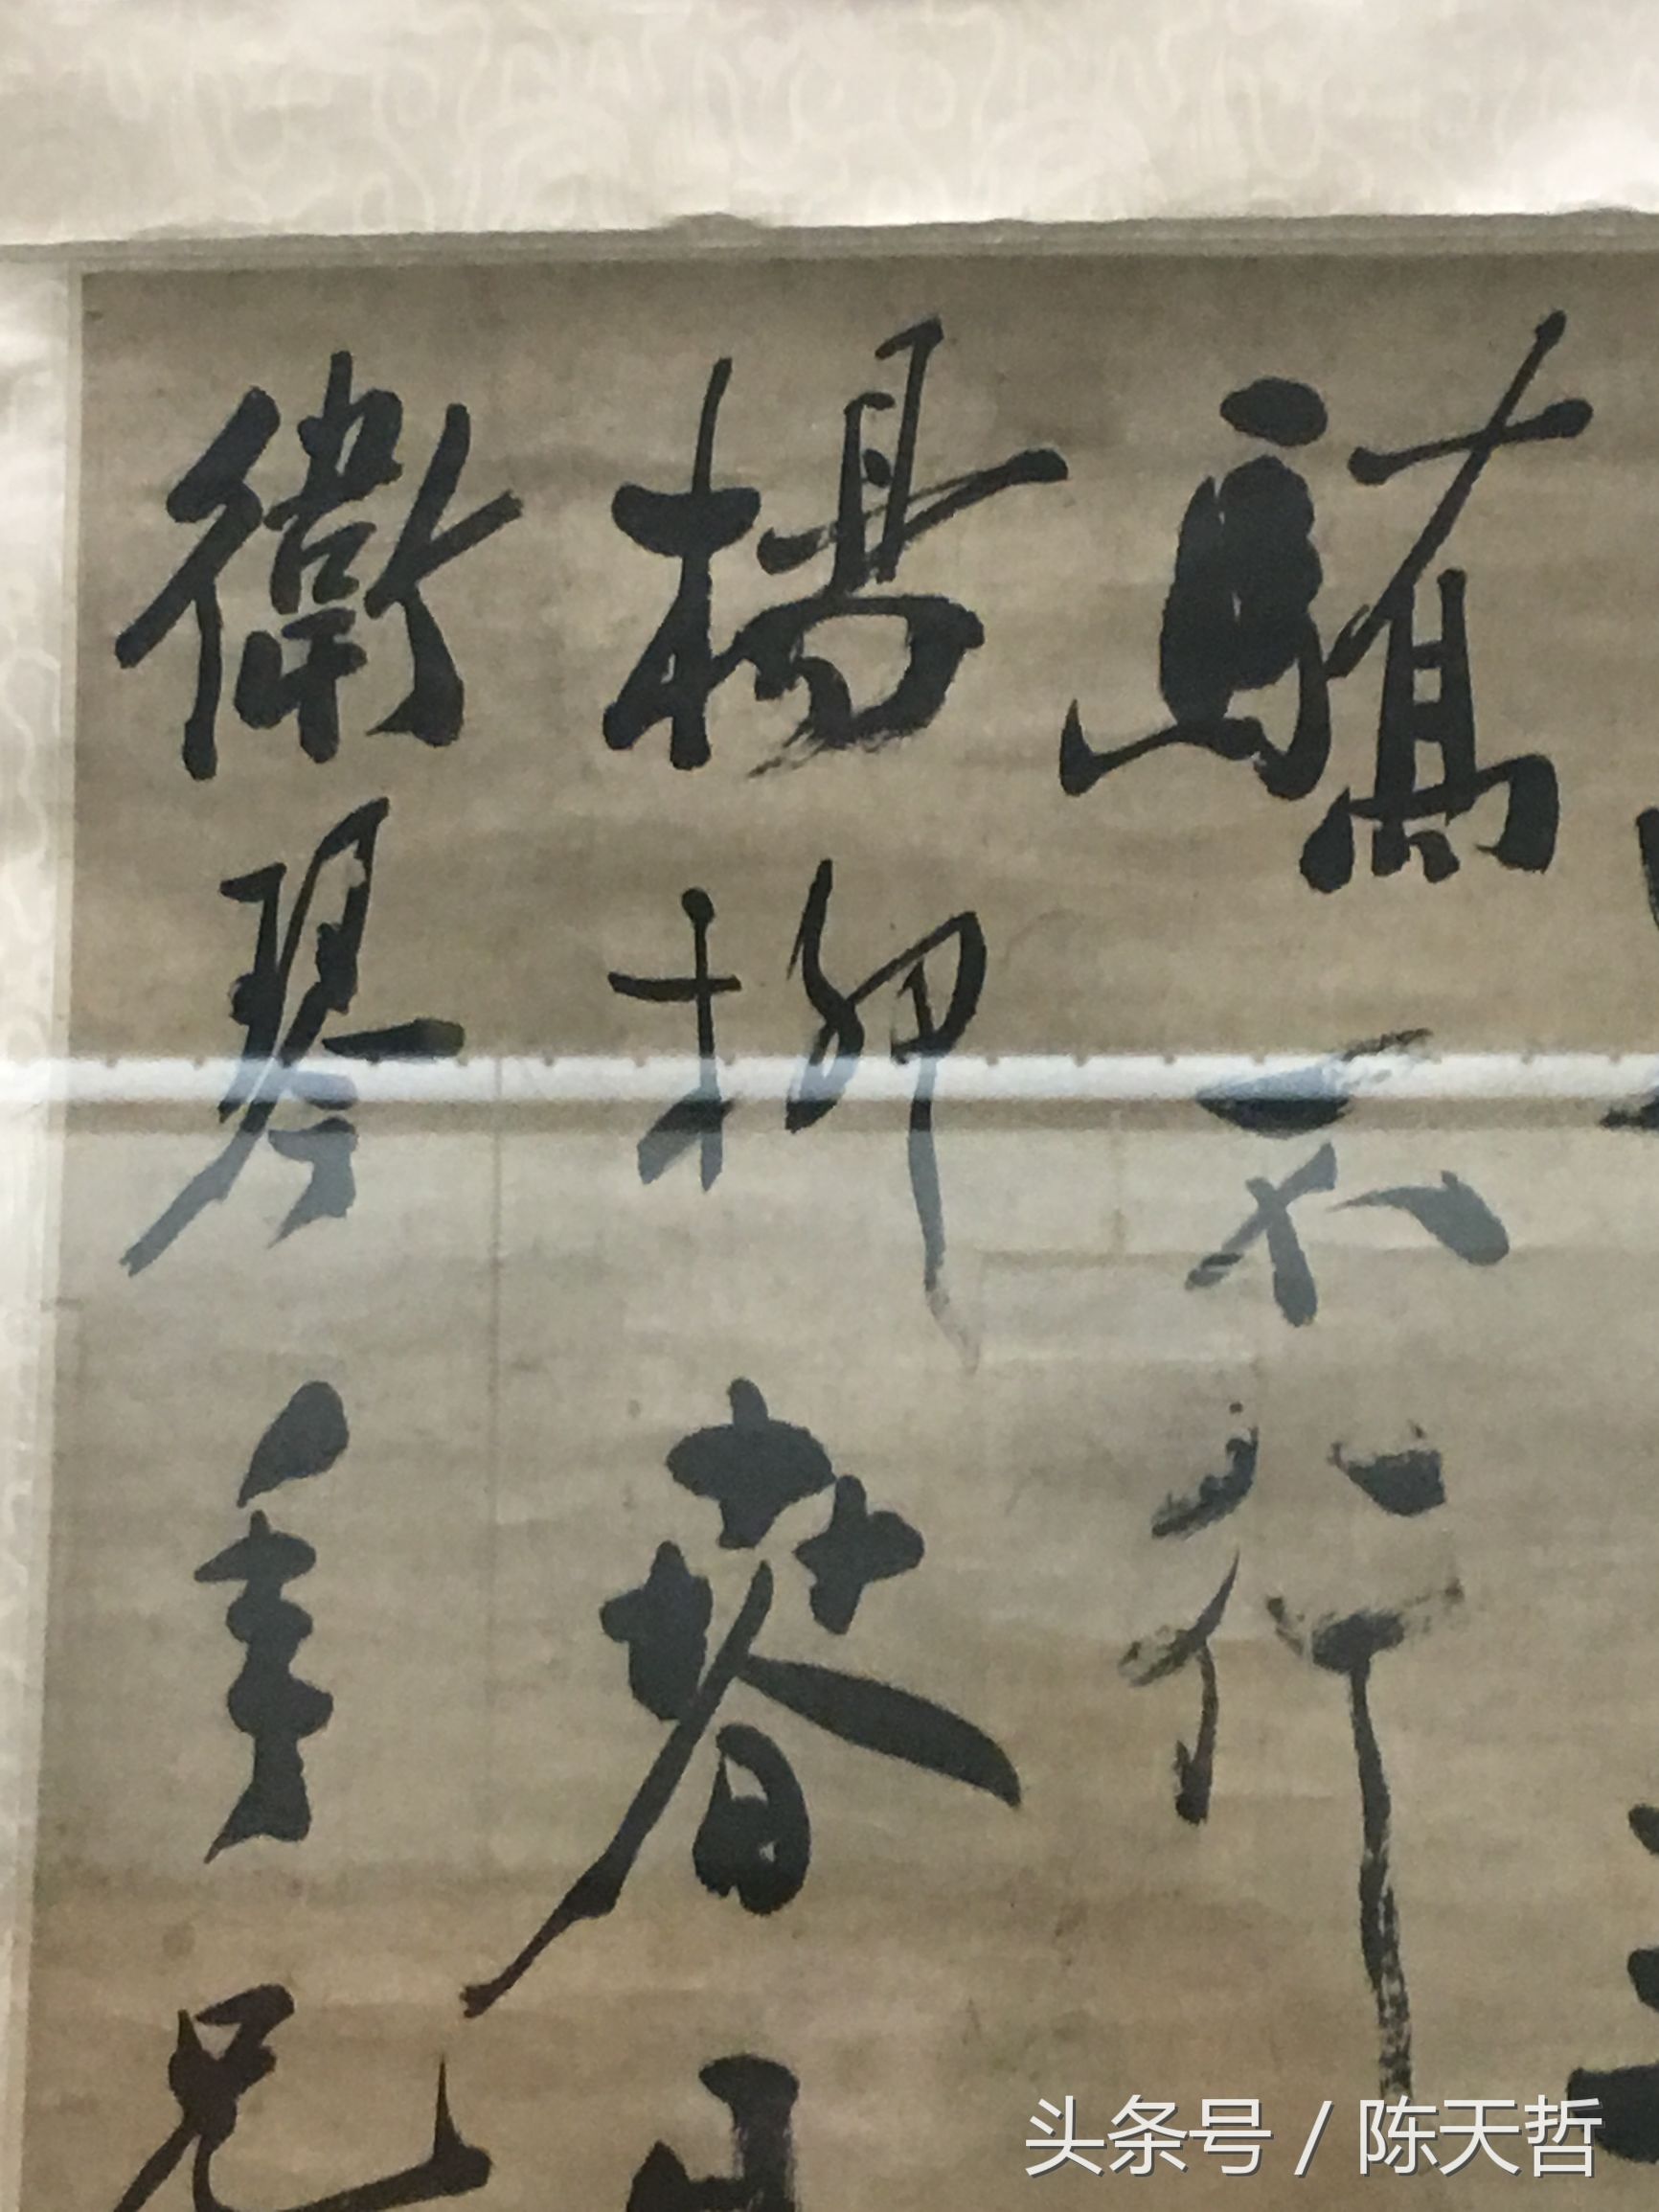 驕不行
楊柳春
衛琴年兄
头条号 / 陈天哲